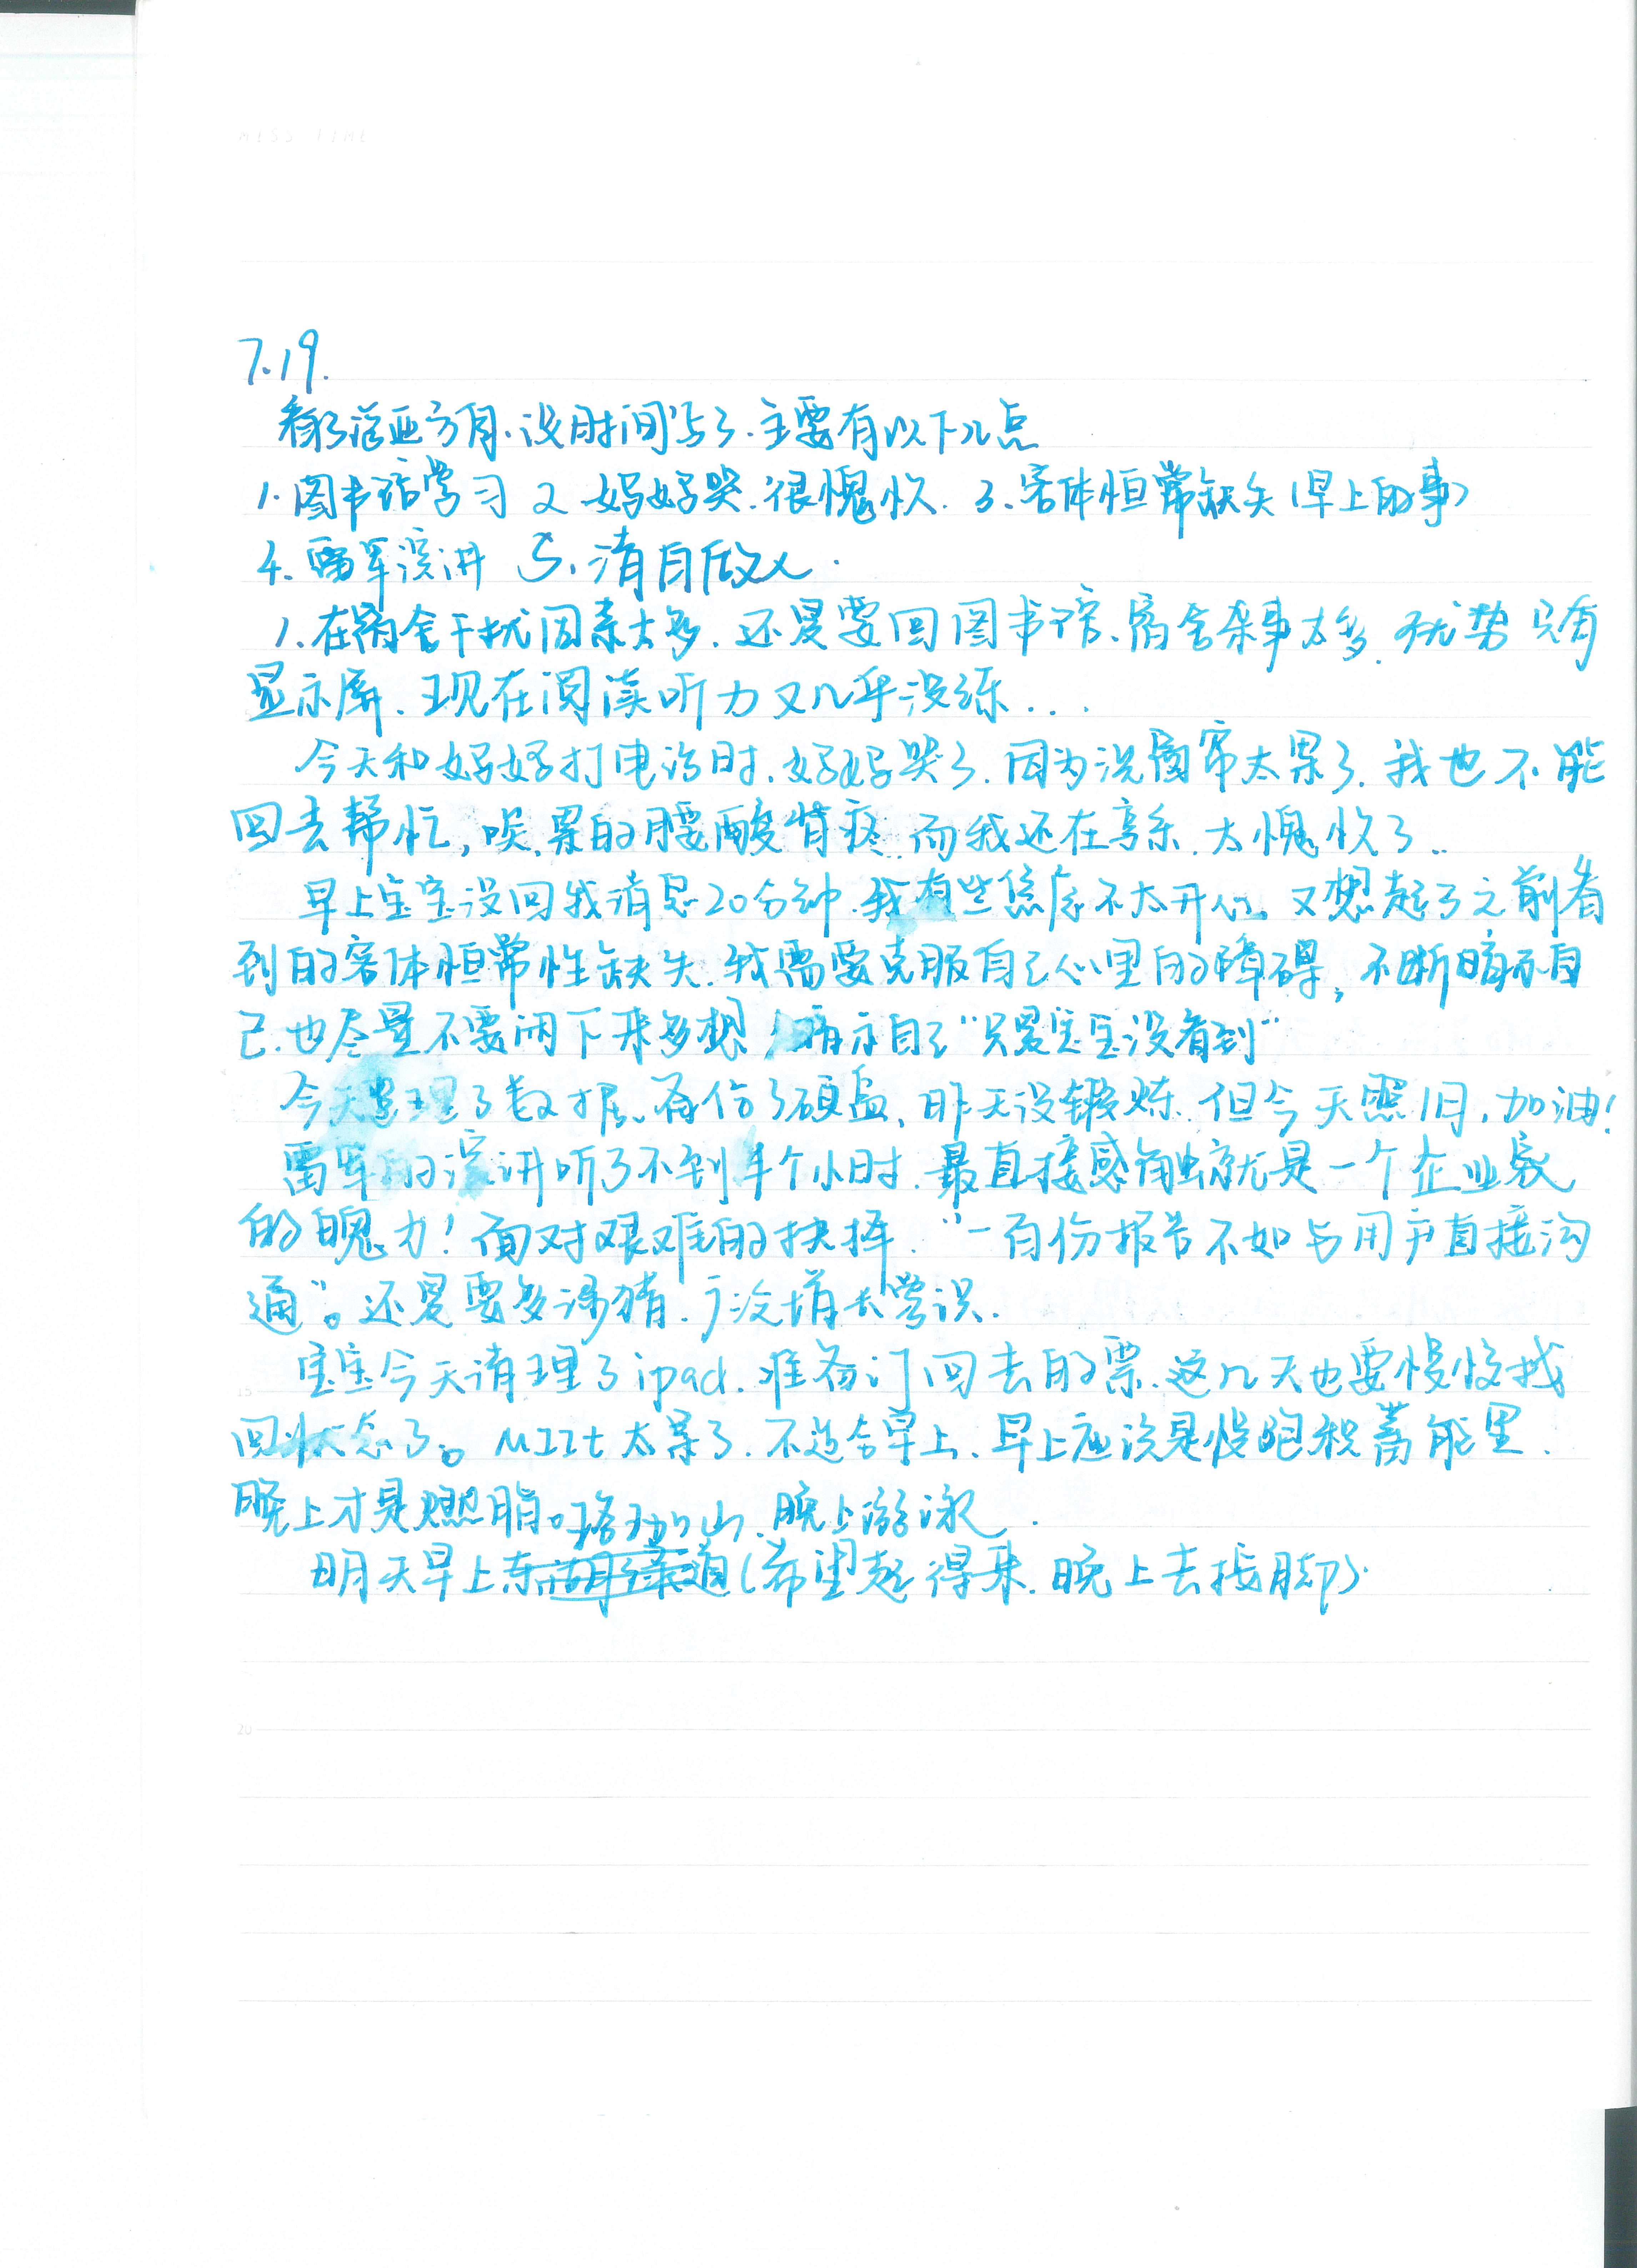 7.19.
看了诺亚方舟.没时间写了.主要有以下几点
1.图书馆学习 2 妈妈哭.很愧疚. 3.客体恒常缺失(早上的事)
4.雷军演讲 5.清白做人.
1.在宿舍干扰因素太多.还是要回图书馆.宿舍杂事太多.优势只有
显示屏.现在阅读听力又几乎没练...
今天和妈妈打电话时.妈妈哭了.因为洗窗帘太累了.我也不能
回去帮忙,唉.累的腰酸背疼.而我还在享乐.太愧疚了..
早上宝宝没回我消息20分钟.我有些焦虑不太开心.又想起了之前看
到的客体恒常性缺失.我需要克服自己心里的障碍,不断暗示自
己.也尽量不要闲下来多想,暗示自己"只是宝宝没看到"
今天整理了数据.备份了硬盘.昨天没锻炼.但今天照旧,加油!
雷军的演讲听了不到半个小时.最直接感触就是一个企业家
的魄力!面对艰难的抉择."一百份报告不如与用户直接沟
通"。还是要多涉猎.广泛增长学识.
宝宝今天清理了ipad.准备订回去的票.这几天也要慢慢找
回状态了。MIIt太累了.不适合早上.早上应该是慢跑积蓄能量.
晚上才是燃脂。珞珈山.晚上游泳.
明天早上东湖绿道(希望起得来.晚上去按脚).
15
20